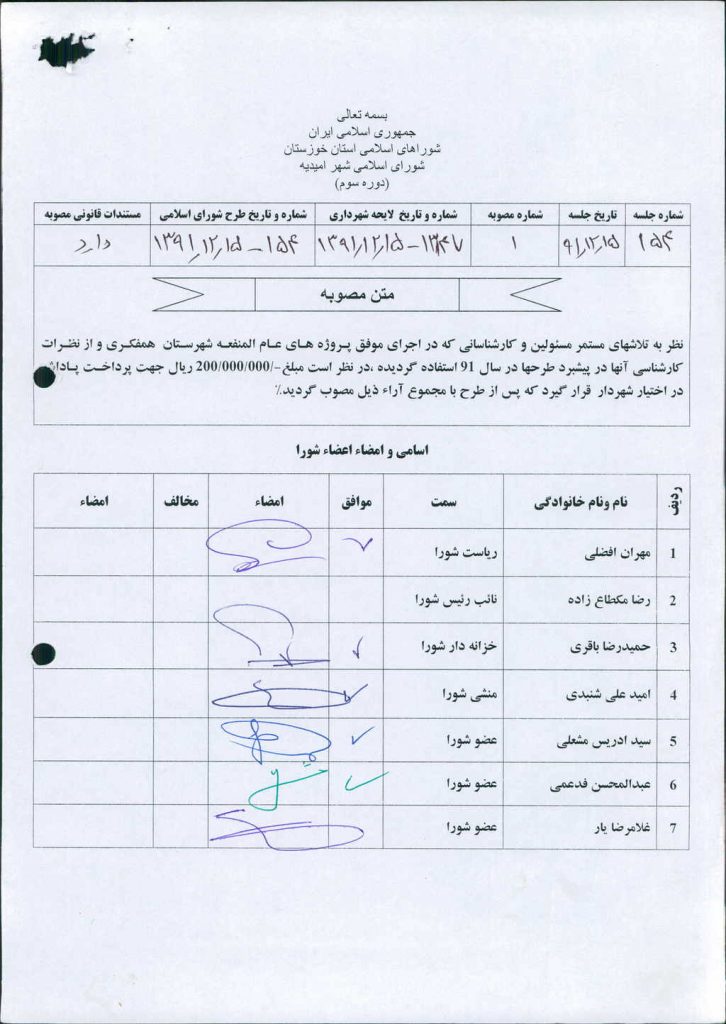 بسمه تعالی
جمهوری اسلامی ایران
شوراهای اسلامی استان خوزستان
شورای اسلامی شهر امیدیه
(دوره سوم)
شماره جلسه تاریخ جلسه شماره مصوبه شماره و تاریخ لایحه شهرداری شماره و تاریخ طرح شورای اسلامی مستندات قانونی مصوبه
۱۵۴ ۹۱/۱۲/۱۵ ۱ ۱۳۹۱/۱۲/۱۵ - ۱۵۴ دارد
متن مصوبه
نظر به تلاشهای مستمر مسئولین و کارشناسانی که در اجرای موفق پروژه های عام المنفعه شهرستان همفکری و از نظرات
کارشناسی آنها در پیشبرد طرحها در سال 91 استفاده گردیده ،در نظر است مبلغ-/200/000/000 ریال جهت پرداخت پاداش
در اختیار شهردار قرار گیرد که پس از طرح با مجموع آراء ذیل مصوب گردید.٪
اسامی و امضاء اعضاء شورا
ردیف نام ونام خانوادگی سمت موافق امضاء مخالف امضاء
1 مهران افضلی ریاست شورا ✓
2 رضا مکطاع زاده نائب رئیس شورا
3 حمیدرضا باقری خزانه دار شورا ✓
4 امید علی شنبدی منشی شورا ✓
5 سید ادریس مشعلی عضو شورا ✓
6 عبدالمحسن فدعمی عضو شورا ✓
7 غلامرضا یار عضو شورا